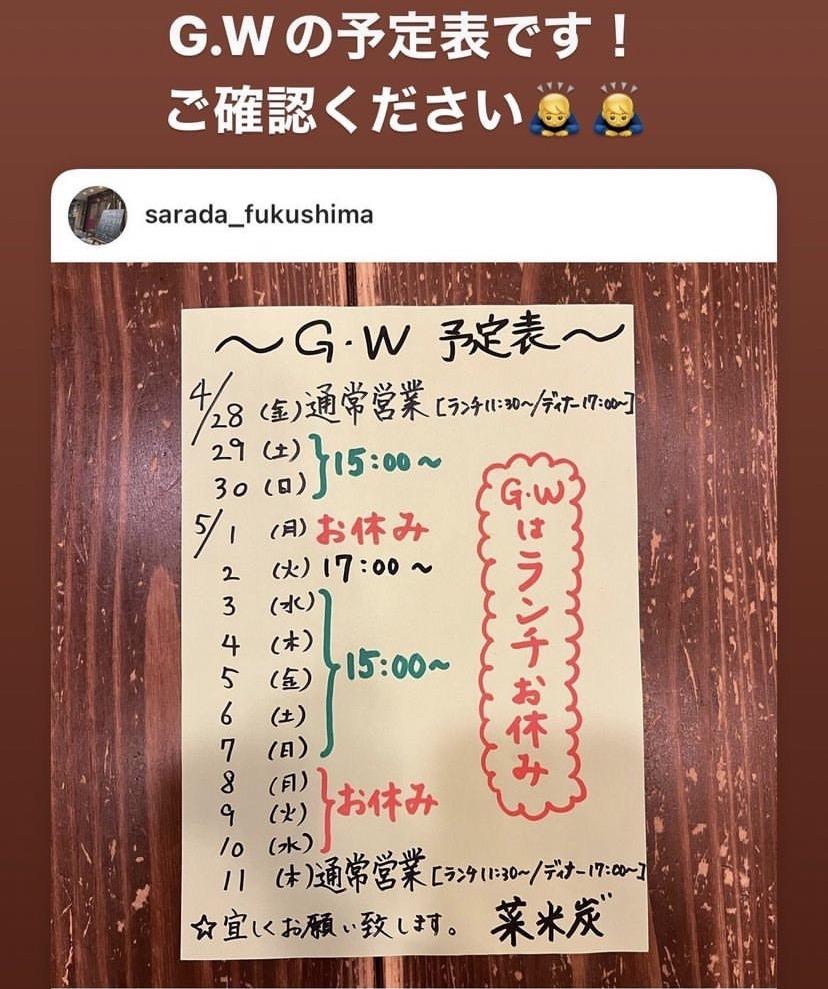 G.Wの予定表です！
ご確認ください🙇🙇
sarada_fukushima
〜G・W 予定表〜
4/28（金）通常営業［ランチ11:30〜/ディナー17:00〜］
29（土）
15:00〜
30（日）
5/1（月）お休み
2（火）17:00〜
3（水）
4（木）
5（金）
15:00〜
6（土）
7（日）
8（月）
9（火）
お休み
10（水）
11（木）通常営業［ランチ11:30〜/ディナー17:00〜］
G・Wはランチお休み
☆宜しくお願い致します。 菜米炭゛